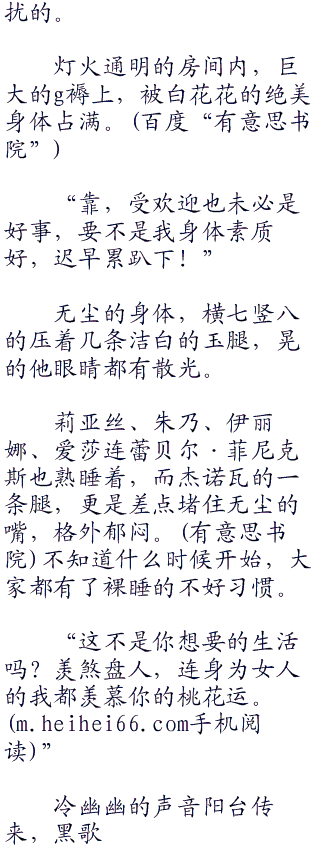 扰的。
灯火通明的房间内，巨
大的g褥上，被白花花的绝美
身体占满。(百度“有意思书
院”)
“靠，受欢迎也未必是
好事，要不是我身体素质
好，迟早累趴下！”
无尘的身体，横七竖八
的压着几条洁白的玉腿，晃
的他眼睛都有散光。
莉亚丝、朱乃、伊丽
娜、爱莎连蕾贝尔·菲尼克
斯也熟睡着，而杰诺瓦的一
条腿，更是差点堵住无尘的
嘴，格外郁闷。(有意思书
院)不知道什么时候开始，大
家都有了裸睡的不好习惯。
“这不是你想要的生活
吗？羡煞盘人，连身为女人
的我都羡慕你的桃花运。
(m.heihei66.com手机阅
读)”
冷幽幽的声音阳台传
来，黑歌